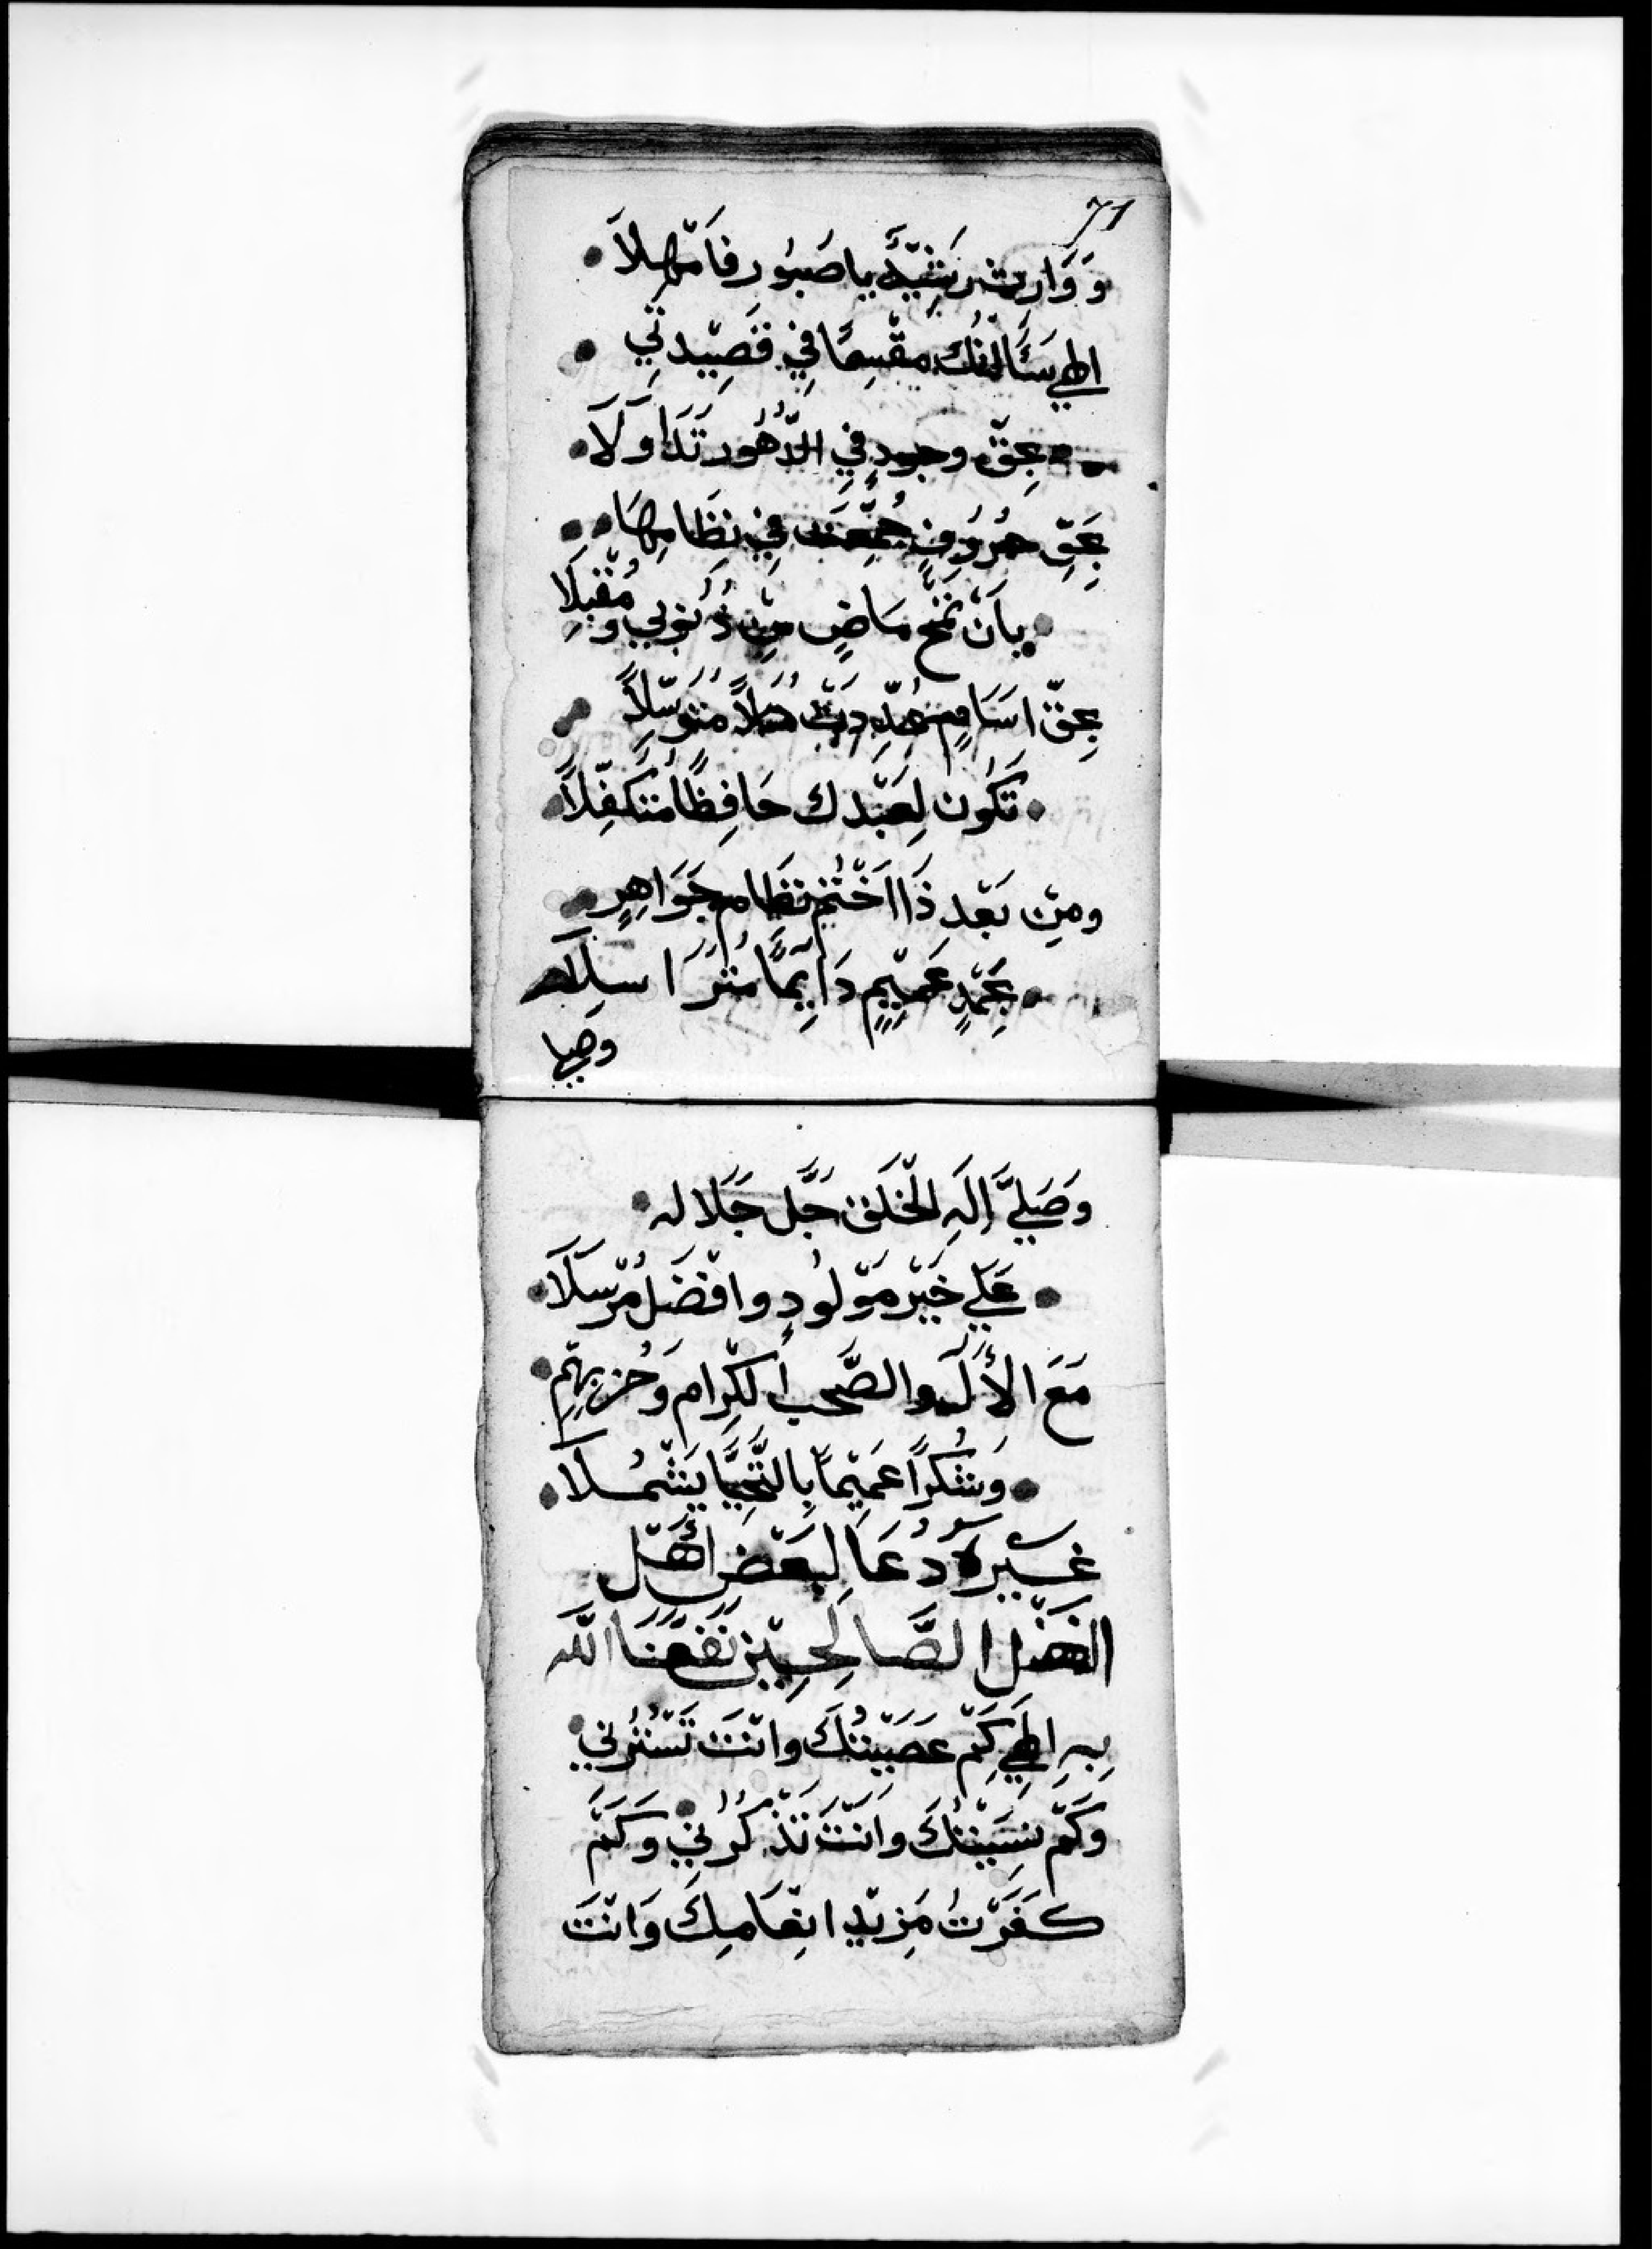 71
وَوَارِث رَشِيدٌ يا صَبُور فأَمْهِلاَ
الهي سَئَالْتُك مقْسِمًا فِي قَصِيْدتِي
بحِقّ وجودٍ فِي الدُّهُور تَدَاوَلَا
بِحَقِّ حُرُوفٍ جُمِّعَت فِي نِظَامِهَا
بأَنْ تَمْحُ مَاضٍ مِن ذُنُوبي وَمُقْبِلَا
بحِقّ اسَامٍ
تَكُون لِعَبْدك حَافِظًا مُتَكَفِّلاً
ومِن بَعْدِ ذَا اَخْتُم نظام جَوَاهِرٍ
بحَمْدٍ عَمِيمٍ دَايِمًا مُتَرَاسِلَا
وصلى
وَصَلِّي إِلَهِ الْخَلق جَّل جَلَاله
عَلَي خَيْر مَوْلُودٍ وافْضَل مُرْسَلَا
مَعَ الأَلَ والصَّحب الكِرَام وَحُزبِهِم
وَشُكْرًا عَمِيمًا بِالتَّحِيَّا يَشْمُلَا
غيره دُعَا لِبَعْض أَهْل
الفضل الصَّالِحِيْن نَفَعَنَا الله
بِهِ الهِي كَمْ عَصَيْتُكَ وانْتَ تَسْتُرُنِي
وَكَمْ نَسِيْتُكَ وَانْتَ تَذْكُرُنِي وَكَمْ
كَفَرْتُ مَزِيْد انِعَامِكَ وَانْتَ